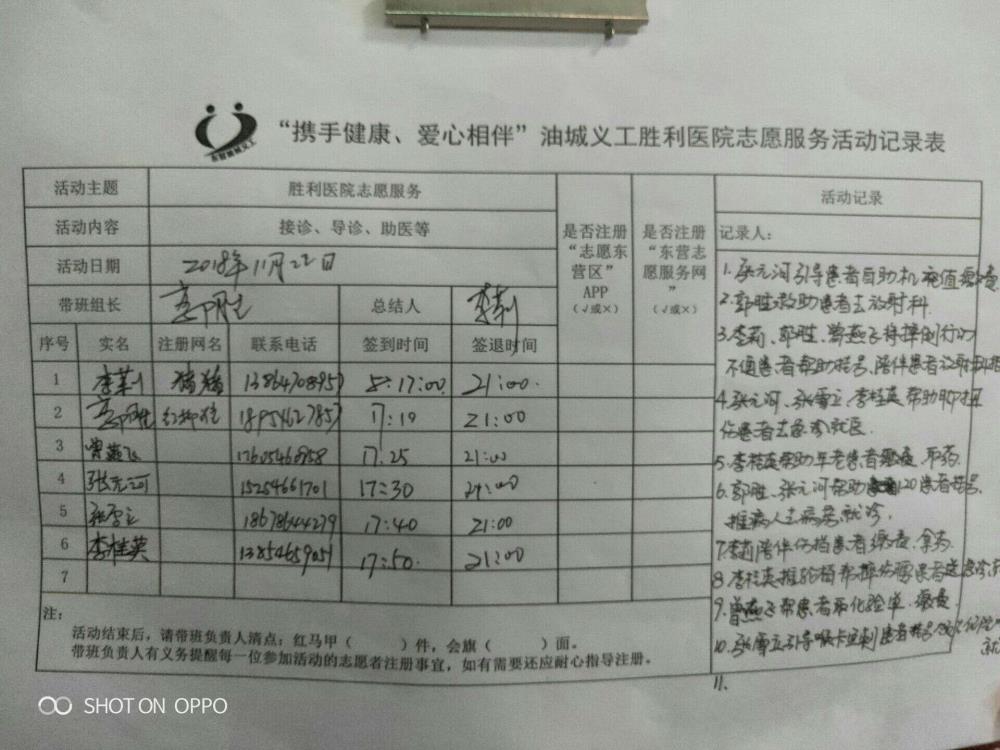 东营油城义工
“携手健康、爱心相伴”油城义工胜利医院志愿服务活动记录表
活动主题 胜利医院志愿服务
活动内容 接诊、导诊、助医等
活动日期 2018年11月22日
带班组长 总结人 李莉
序号 实名 注册网名 联系电话 签到时间 签退时间
是否注册“志愿东营区”APP（√或×）
是否注册“东营志愿服务网”（√或×）
1 李莉 17:00 21:00
2 17:19 21:00
3 曾燕飞 17:25 21:00
4 张元河 15254661701 17:30 21:00
5 张雪立 18678644279 17:40 21:00
6 李桂英 13854659051 17:50 21:00
7
注：
活动结束后，请带班负责人清点：红马甲（ ）件，会旗（ ）面。
带班负责人有义务提醒每一位参加活动的志愿者注册事宜，如有需要还应耐心指导注册。
活动记录
记录人：
1.张元河引导患者自助机充值缴费
2.郭胜救助患者去放射科
3.李莉、郭胜、曾燕飞将摔倒行动
不便患者帮助挂号、陪伴患者
4.张元河、张雪立、李桂英帮助
伤患者去急诊就医
5.李桂英帮助年老患者缴费、取药
6.郭胜、张元河帮助120患者挂号
推病人去病房就诊
7.李莉陪伴患者缴费、拿药
8.李桂英推轮椅帮摔伤患者送急诊
9.曾燕飞帮患者取化验单、缴费
10.张雪立引导患者挂号
11.
SHOT ON OPPO